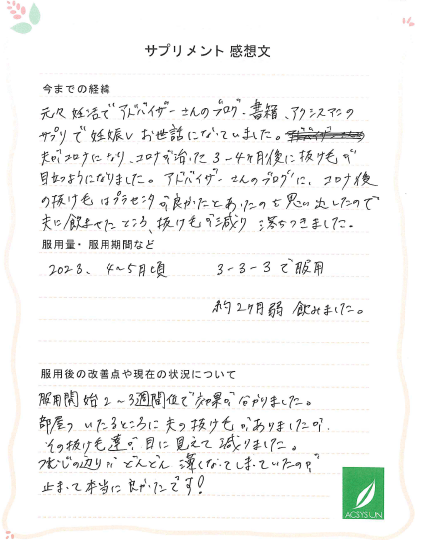 サプリメント 感想文
今までの経緯
元々 妊活で アドバイザーさんのブログ・書籍、アクシスアンの
サプリで 妊娠し お世話になっていました。
夫がコロナになり、コロナが治った 3-4ヶ月後に抜け毛が
目立つようになりました。アドバイザーさんのブログに、コロナ後
の抜け毛はプラセンタが良かったとあったのを思い出したので
夫に飲ませたところ、抜け毛が減り 落ちつきました。
服用量・服用期間など
2023、4~5月頃 3-3-3で服用
約2ヶ月弱 飲みました。
服用後の改善点や現在の状況について
服用開始2~3週間位で効果が分かりました。
部屋のいたるところに夫の抜け毛がありましたが、
その抜け毛達が目に見えて減りました。
つむじの辺りがどんどん薄くなってしまっていたのが
止まって本当に良かったです!
ACSYSUN